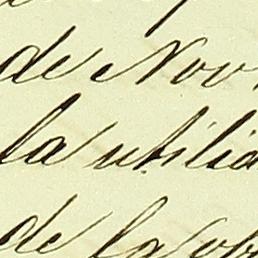 de Nov.
la utilid
de la ob